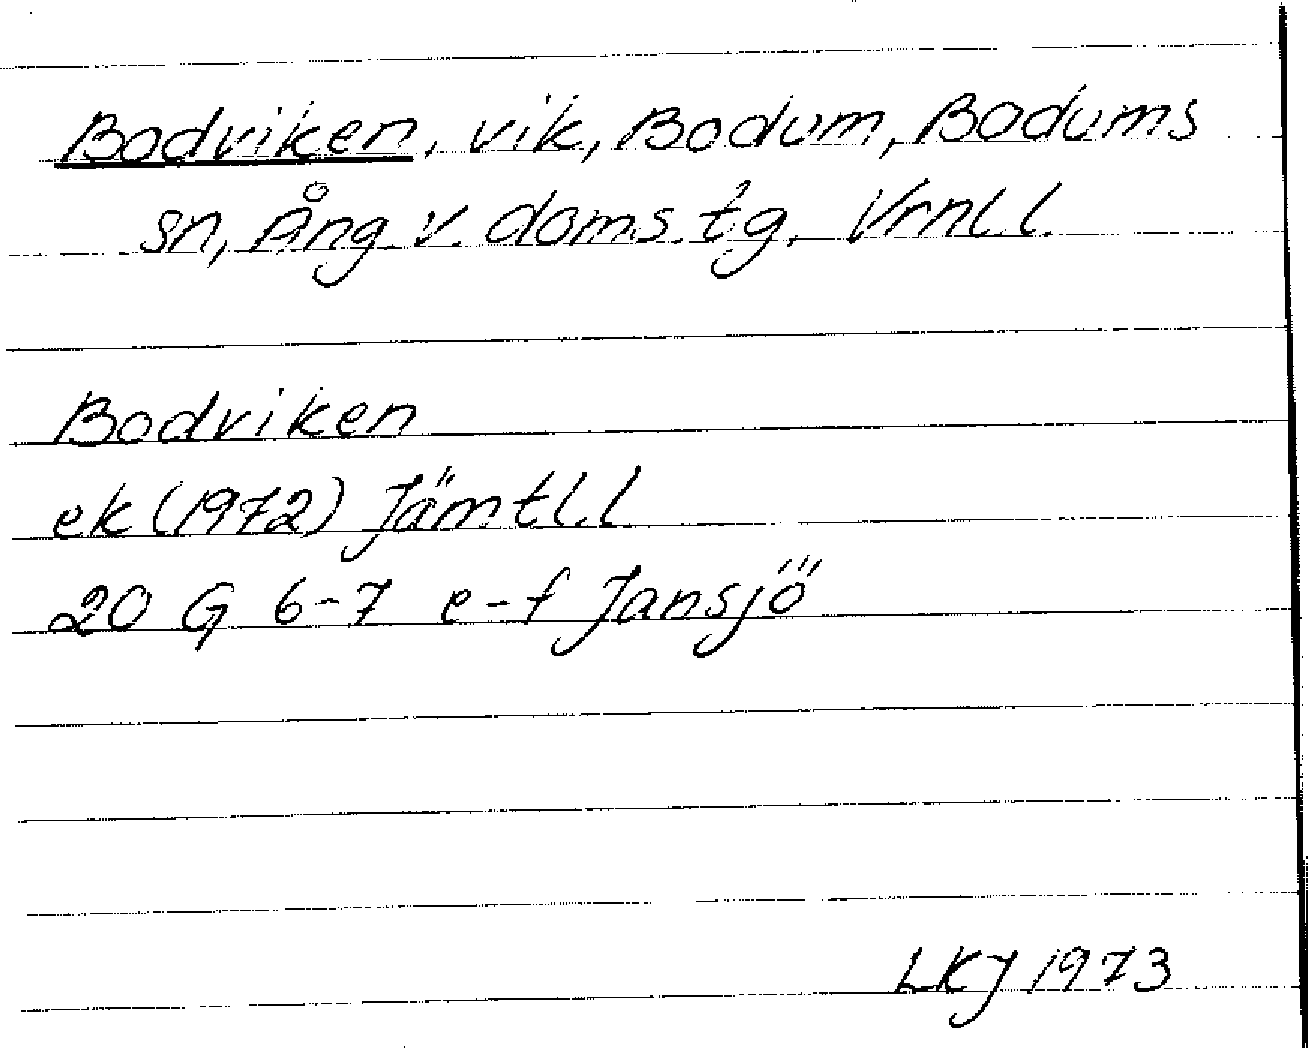 Bodviken, vik, Bodum, Bodums
sn, Ång. v. doms. tg, Vrnl. l.
Bodviken
ek (1972) Jämtl. l
20 G 6-7 e-f Jansjö
LKJ 1973